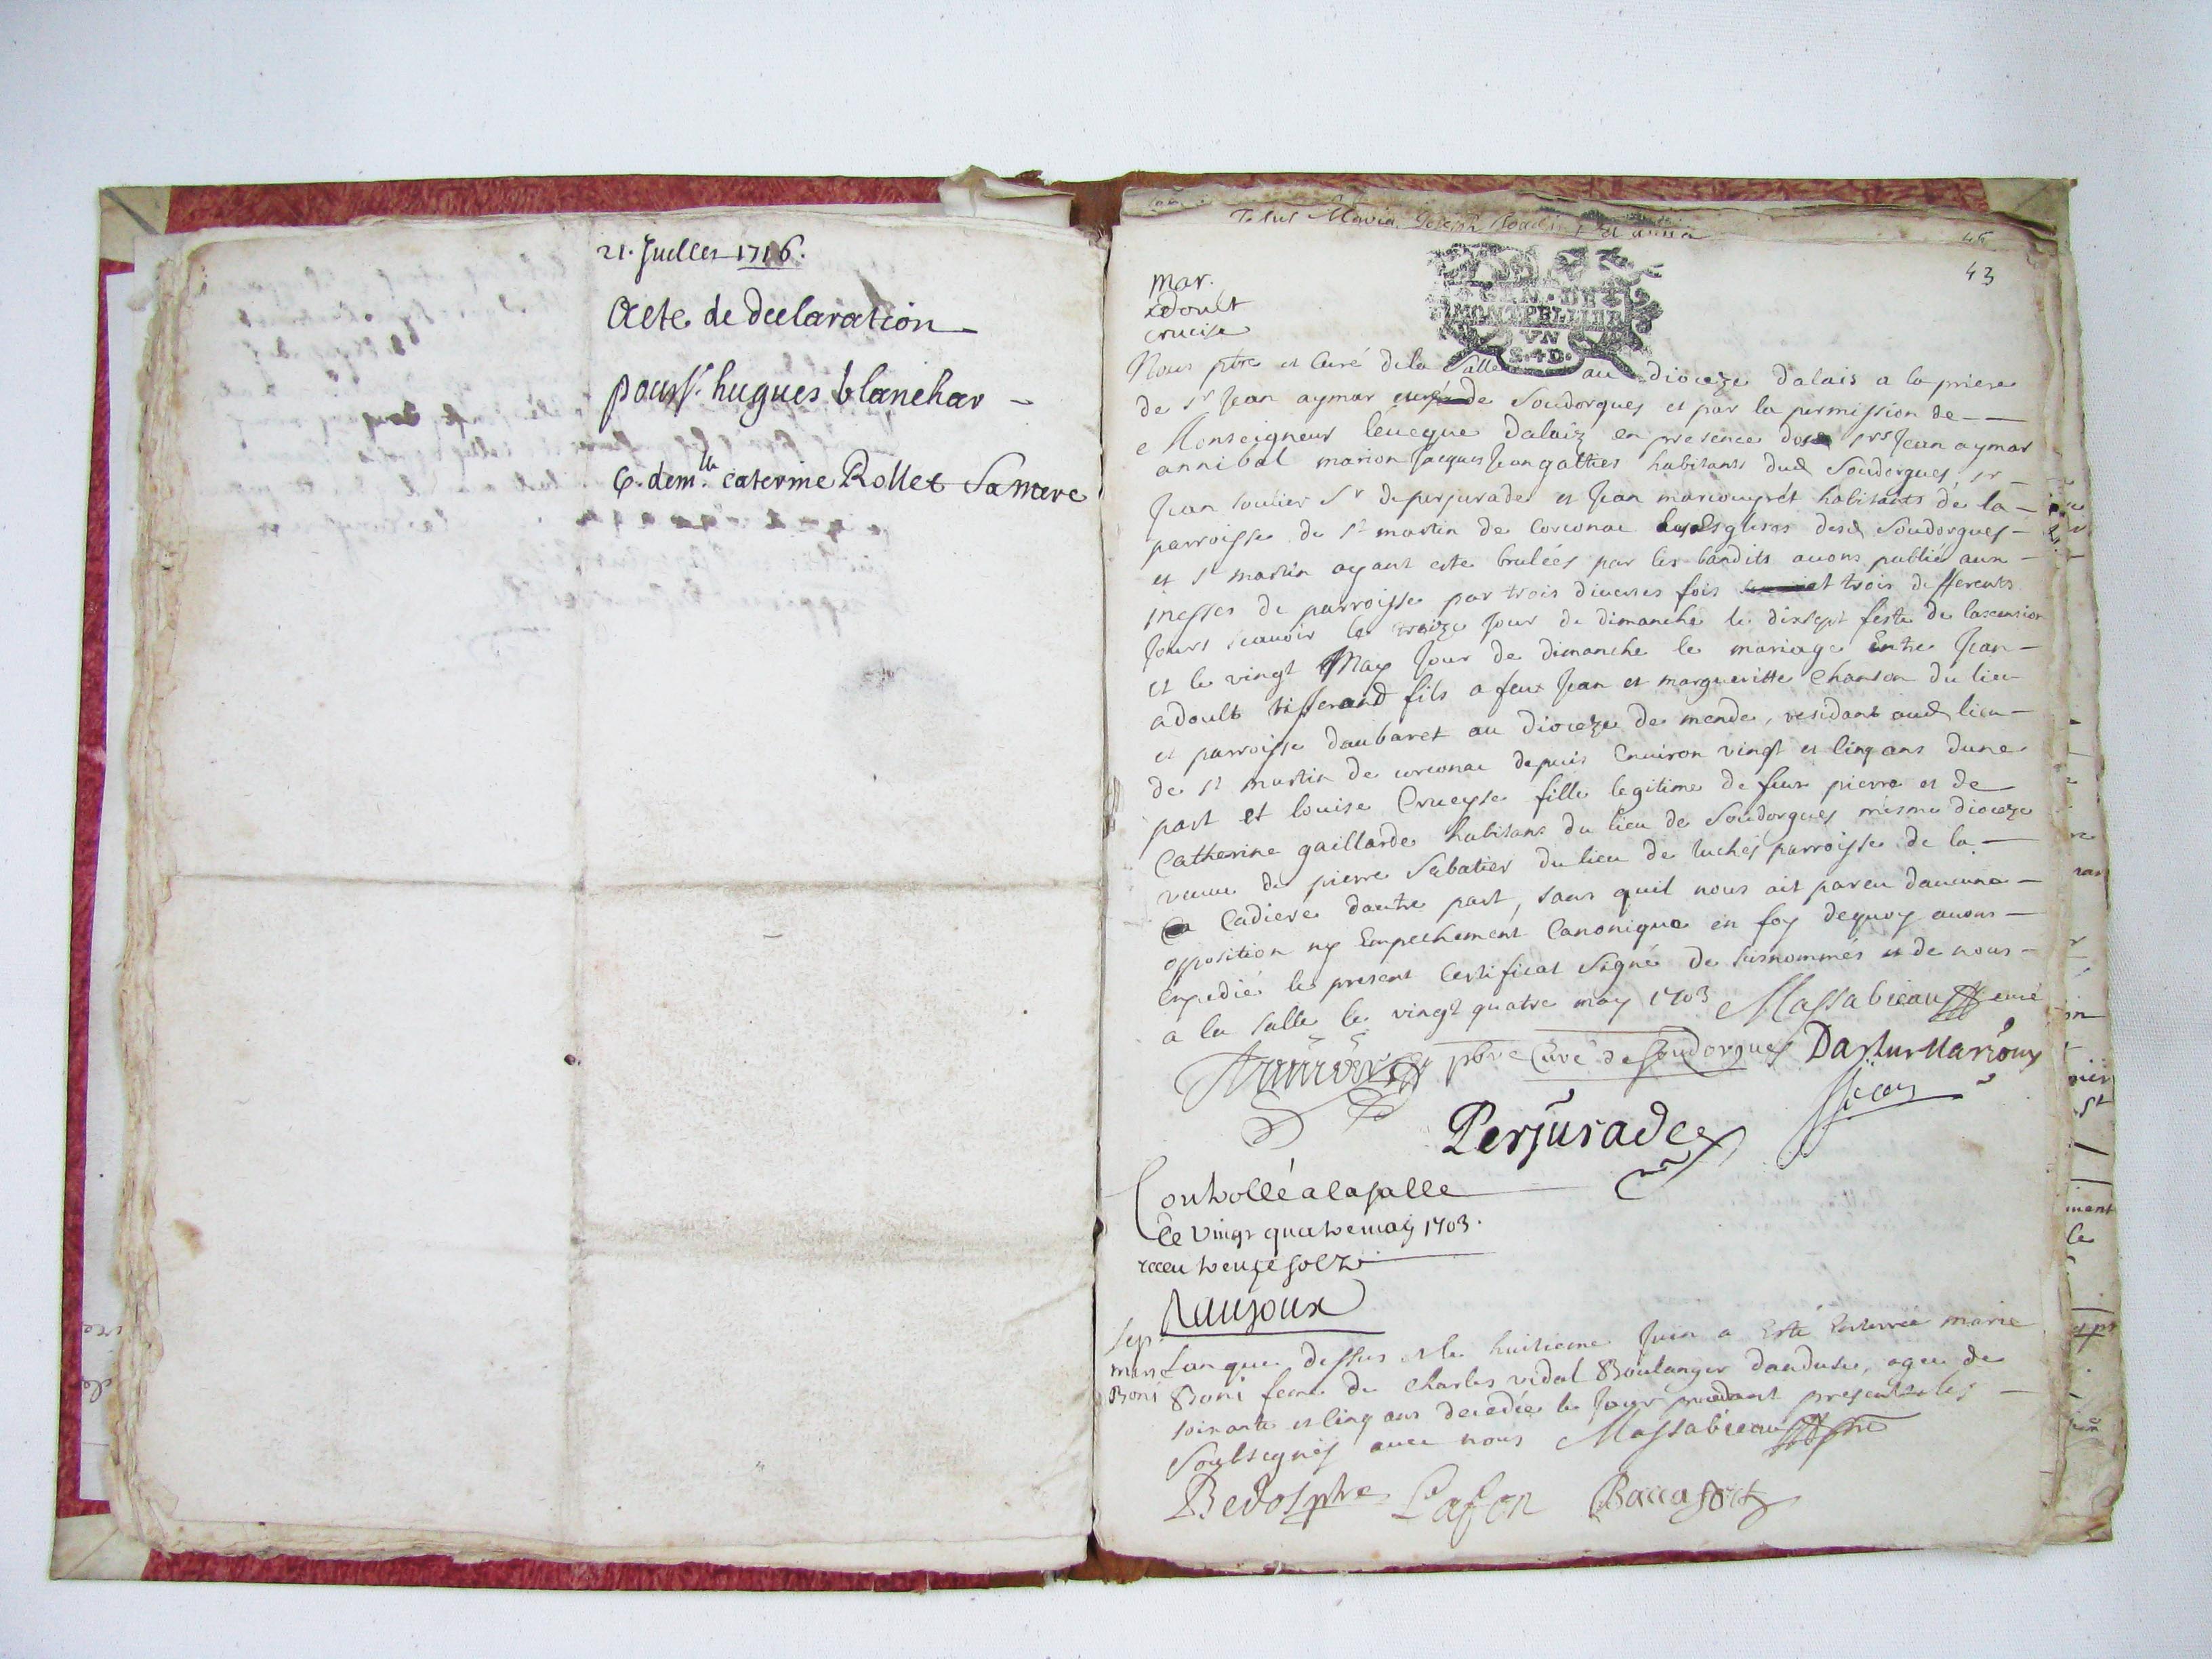 21. Juillet 1716.
Acte de declaration
pour Sr. hugues blanchar
& demlle caterine Rollet Sa mere
Jesus Maria Joseph
43
mar.
adoult
crucise
GEN. DE
MONTPELLIER
VN
S. 4 D.
Nous ptre et Curé de la Salle au dioceze dalais a la priere
de Sr Jean aymar curé de Soudorgues et par la permission de
Monseigneur leveque dalaiz en presence des srs Jean aymar
annibal marion Jacques Jean gatties habitants dud Soudorgues, sr
Jean soulier Sr de perjurade et Jean habitants de la
parroisse de St martin de Corconac les Esglises desd Soudorgues
et St martin ayant esté brulées par les bandits avons publié aux
messes de parroisse par trois diverses fois et trois differents
Jours scavoir le treize Jour de dimanche le dixsept feste de lascension
et le vingt May Jour de dimanche le mariage Entre Jean
adoult tisserand fils a feux Jean et margueritte Chanson du lieu
et parroisse daubaret au dioceze de mende, residant aud lieu
de St martin de corconac depuis Environ vingt et Cinq ans dune
part et louise Crucyse fille legitime de feux pierre et de
Catherine gaillarde habitans du lieu de Soudorgues mesme dioceze
veuve de pierre Sabatier du lieu de luches parroisse de la
Cadiere dautre part, sans quil nous ait pareu daucune
opposition ny Empechement Canonique en foy dequoy avons
Expedié le present Certificat Signé de susnommés et de nous
a la Salle le vingt quatre may 1703 Massabieau curé
ptre Curé de Soudorgues
Perjurade
Controllé a la salle
le vingt quatre may 1703.
receu treuze solz
Naujoux
Sep.
marie
Boni
Lan que dessus et le huitieme Juin a Esté Enterrée marie
Boni feme de Charles vidal Boulanger danduse, agée de
soixante et Cinq ans decedée le Jour precedant presents les
Soubsegnés avec nous Massabieau ptre
Bedos ptre Lafon